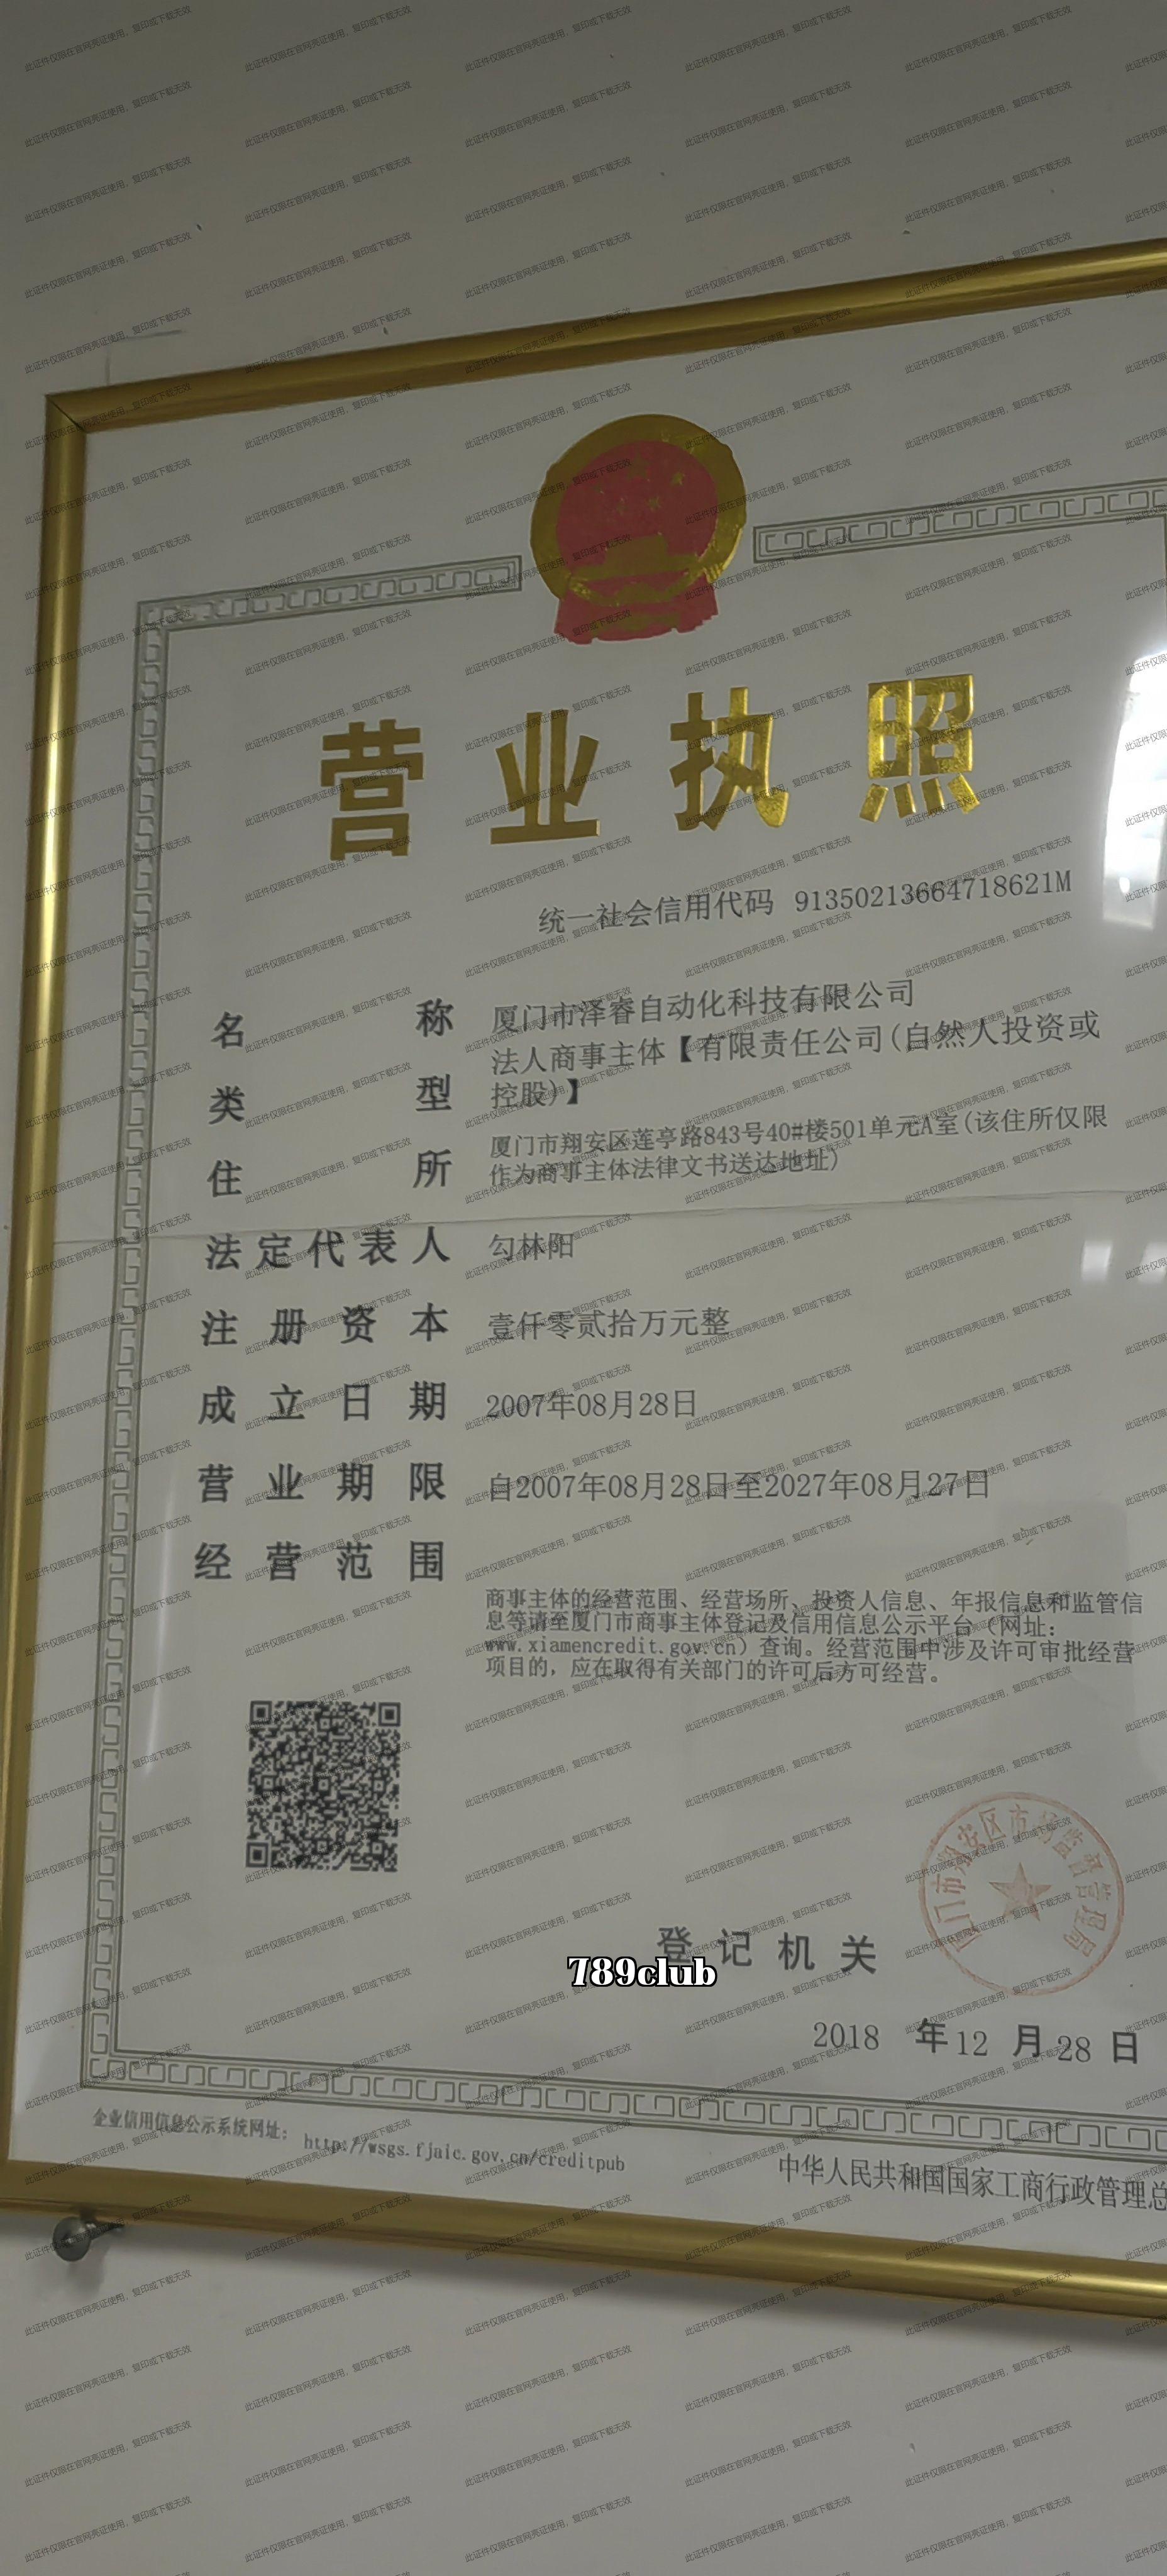 营业执照
统一社会信用代码 91350213664718621M
名称 厦门市泽睿自动化科技有限公司
类型 法人商事主体【有限责任公司(自然人投资或
控股)】
住所 厦门市翔安区莲亭路843号40#楼501单元A室(该住所仅限
作为商事主体法律文书送达地址)
法定代表人 勾林阳
注册资本 壹仟零贰拾万元整
成立日期 2007年08月28日
营业期限 自2007年08月28日至2027年08月27日
经营范围
商事主体的经营范围、经营场所、投资人信息、年报信息和监管信
息等请至厦门市商事主体登记及信用信息公示平台（网址：
www.xiamencredit.gov.cn）查询。经营范围中涉及许可审批经营
项目的，应在取得有关部门的许可后方可经营。
厦门市翔安区市场监督管理局
登记机关
789club
2018 年 12 月 28 日
企业信用信息公示系统网址： http://wsgs.fjaic.gov.cn/creditpub
中华人民共和国国家工商行政管理总
此证件仅限在官网亮证使用，复印或下载无效